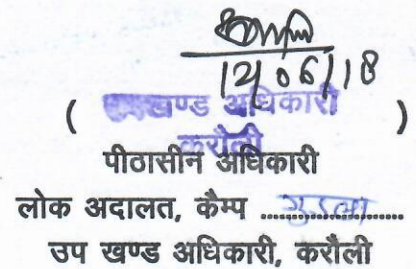 12/06/18
( उपखण्ड अधिकारी )
करौली
पीठासीन अधिकारी
लोक अदालत, कैम्प ............
उप खण्ड अधिकारी, करौली